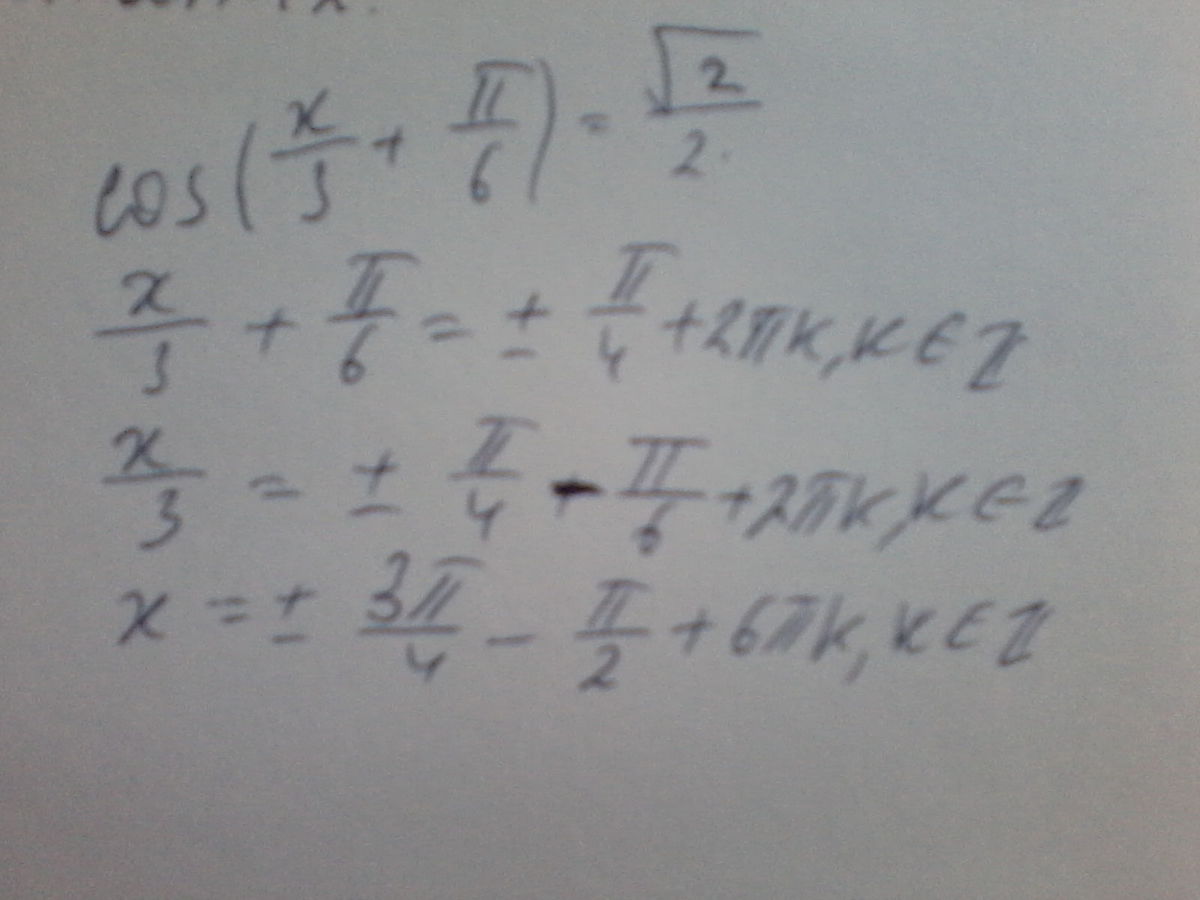 cos(x/3 + π/6) = √2/2
x/3 + π/6 = ± π/4 + 2πk, k ∈ Z
x/3 = ± π/4 - π/6 + 2πk, k ∈ Z
x = ± 3π/4 - π/2 + 6πk, k ∈ Z